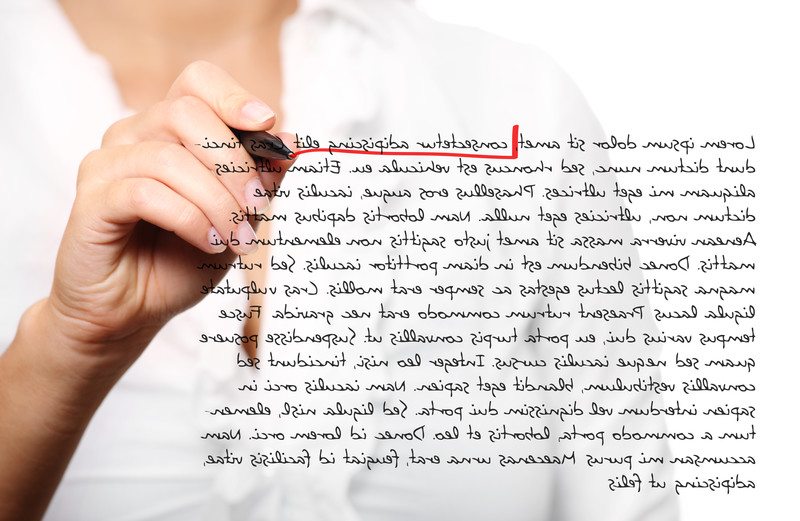 Lorem ipsum dolor sit amet, consectetur adipiscing elit. Cras tinci-
dunt dictum nunc, sed rhoncus est vehicula eu. Etiam ultricies
aliquam mi eget ultrices. Phasellus eros augue, iaculis vitae
dictum non, ultricies eget nulla. Nam lobortis dapibus mattis.
Aenean viverra massa sit amet justo sagittis non elementum dui
mattis. Donec bibendum est in diam porttitor iaculis. Sed rutrum
magna sagittis lectus egestas ac semper erat mollis. Cras vulputate
ligula lacus Praesent rutrum commodo erat nec gravida. Fusce
tempus varius dui, eu porta turpis convallis ut Suspendisse posuere
quam sed neque iaculis cursus. Integer leo nisi, tincidunt sed
convallis vestibulum, blandit eget sapien. Nam iaculis orci in
sapien interdum vel dignissim dui porta. Sed ligula nisl, elemen-
tum a commodo porta, lobortis et leo. Donec id lorem orci. Nam
accumsan mi purus Maecenas urna erat, feugiat id facilisis vitae,
adipiscing ut felis